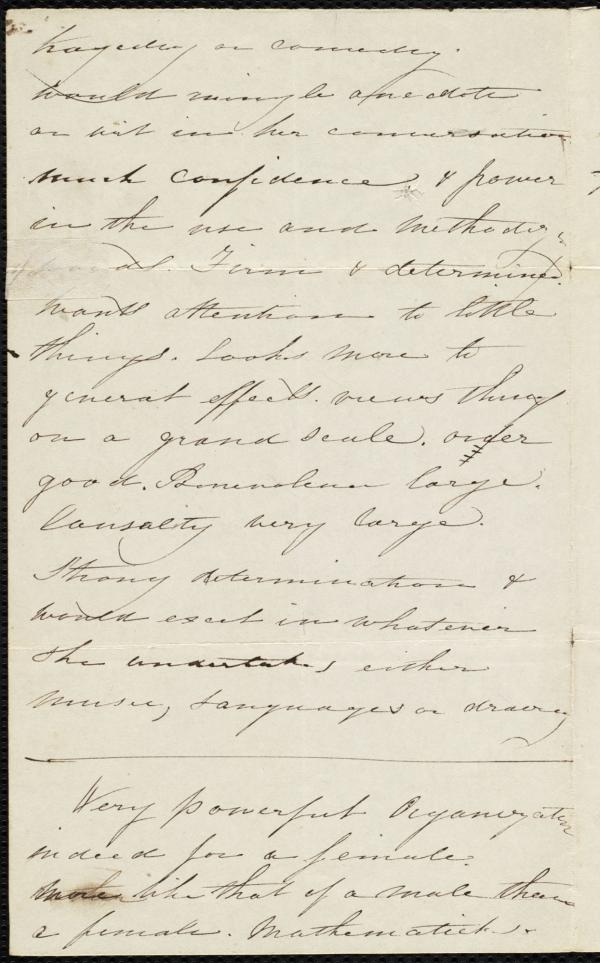 tragedy or comedy.
would mingle anecdote
or wit in her conversation
much confidence & power
in the use and method of
Firm & determined.
wants attention to little
things. Looks more to
general effects. views things
on a grand scale. order
good. Benevolence large.
Causality very large.
Strong determination &
would excel in whatever
she undertakes either
music, Languages or drawing
Very powerful Organization
indeed for a female.
more like that of a male than
a female. Mathematicks